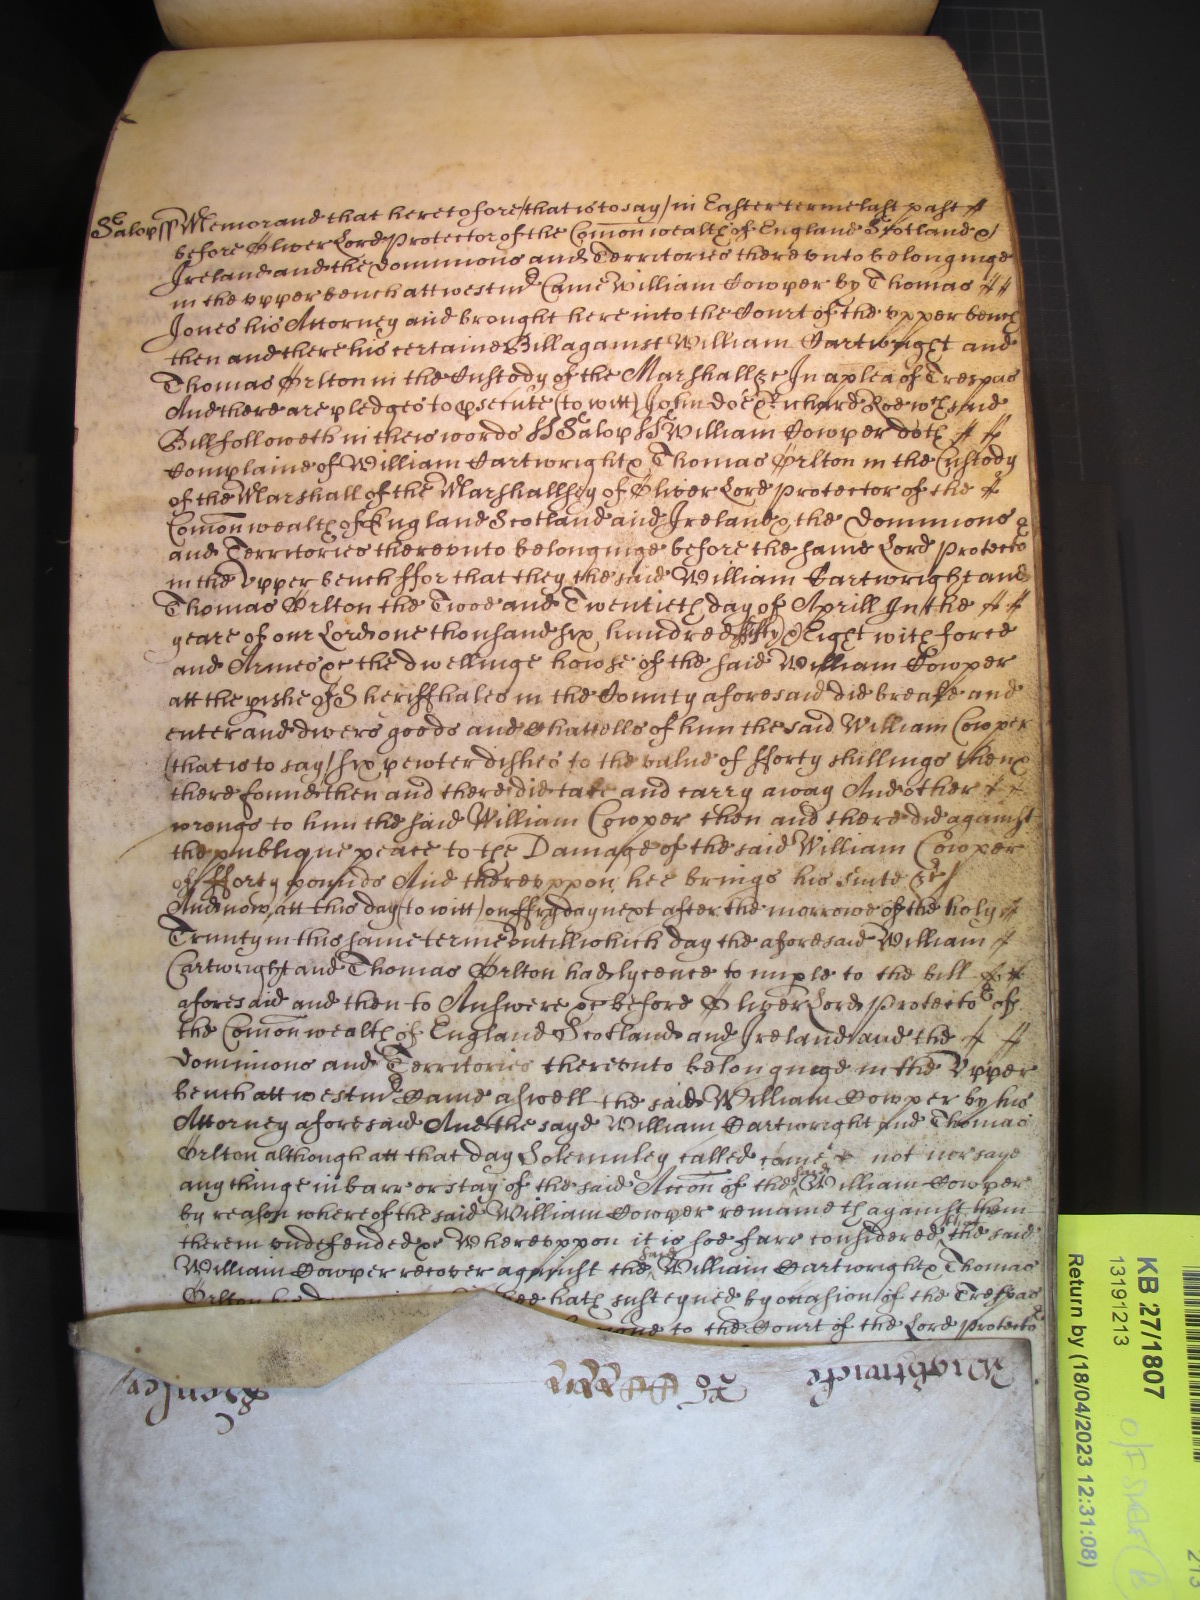 Salop ss Memorand that heretofore (that is to say) in Easter terme last past
before Oliver Lord Protector of the Comon wealth of England Scotland &
Ireland and the dominions and Territories thereunto belonginge
in the upper bench att westmr Came William Cowper by Thomas
Jones his Attorney and brought here into the Court of the upper bench
then and there his certaine Bill against William Cartwright and
Thomas Orlton in the Custody of the Marshall &c In a plea of Trespas
And there are pledges to psecute (to witt) John Doe & Richard Roe wch said
Bill followeth in theis words ss Salop ss William Cowper doth
Complaine of William Cartwright & Thomas Orlton in the Custody
of the Marshall of the Marshallsey of Oliver Lord Protector of the
Comon wealth of England Scotland and Ireland & the dominions
and Territories thereunto belonginge before the same Lord Protector
in the upper bench ffor that they the said William Cartwright and
Thomas Orlton the Twoe and Twentieth day of Aprill In the
yeare of our Lord one thousand six hundred ffifty & Eight with force
and Armes &c the dwellinge howse of the said William Cowper
att the pishe of Sheriffhales in the County aforesaid did breake and
enter and divers goods and Chattells of him the said William Cowper
(that is to say) six pewter dishes to the value of fforty shillings then &
there found then and there did take and carry away And other
wrongs to him the said William Cowper then and there did against
the publique peace to the Damage of the said William Cowper
of fforty pounds And thereuppon hee brings his suite &c
And now att this day (to witt) on ffryday next after the morrowe of the holy
Trinity in this same terme untill which day the aforesaid William
Cartwright and Thomas Orlton had lycence to imple to the bill
aforesaid and then to Answere &c before Oliver Lord Protector of
the Comon wealth of England Scotland and Ireland and the
dominions and Territories thereunto belonginge in the Upper
bench att westmr Came aswell the said William Cowper by his
Attorney aforesaid And the sayd William Cartwright and Thomas
Orlton although att that day Solemnley called came not nor saye
any thinge in barr or stay of the said Accon of the said William Cowper
by reason whereof the said William Cowper remaineth against them
therein undefended &c Whereuppon it is soe farr considered that the said
William Cowper recover against the said William Cartwright & Thomas
Orlton hee hath susteyned by occasion of the Trespas
to the Court of the Lord Protector
Wightwick
KB 27/1807
13191213
Return by (18/04/2023 12:31:08)
213